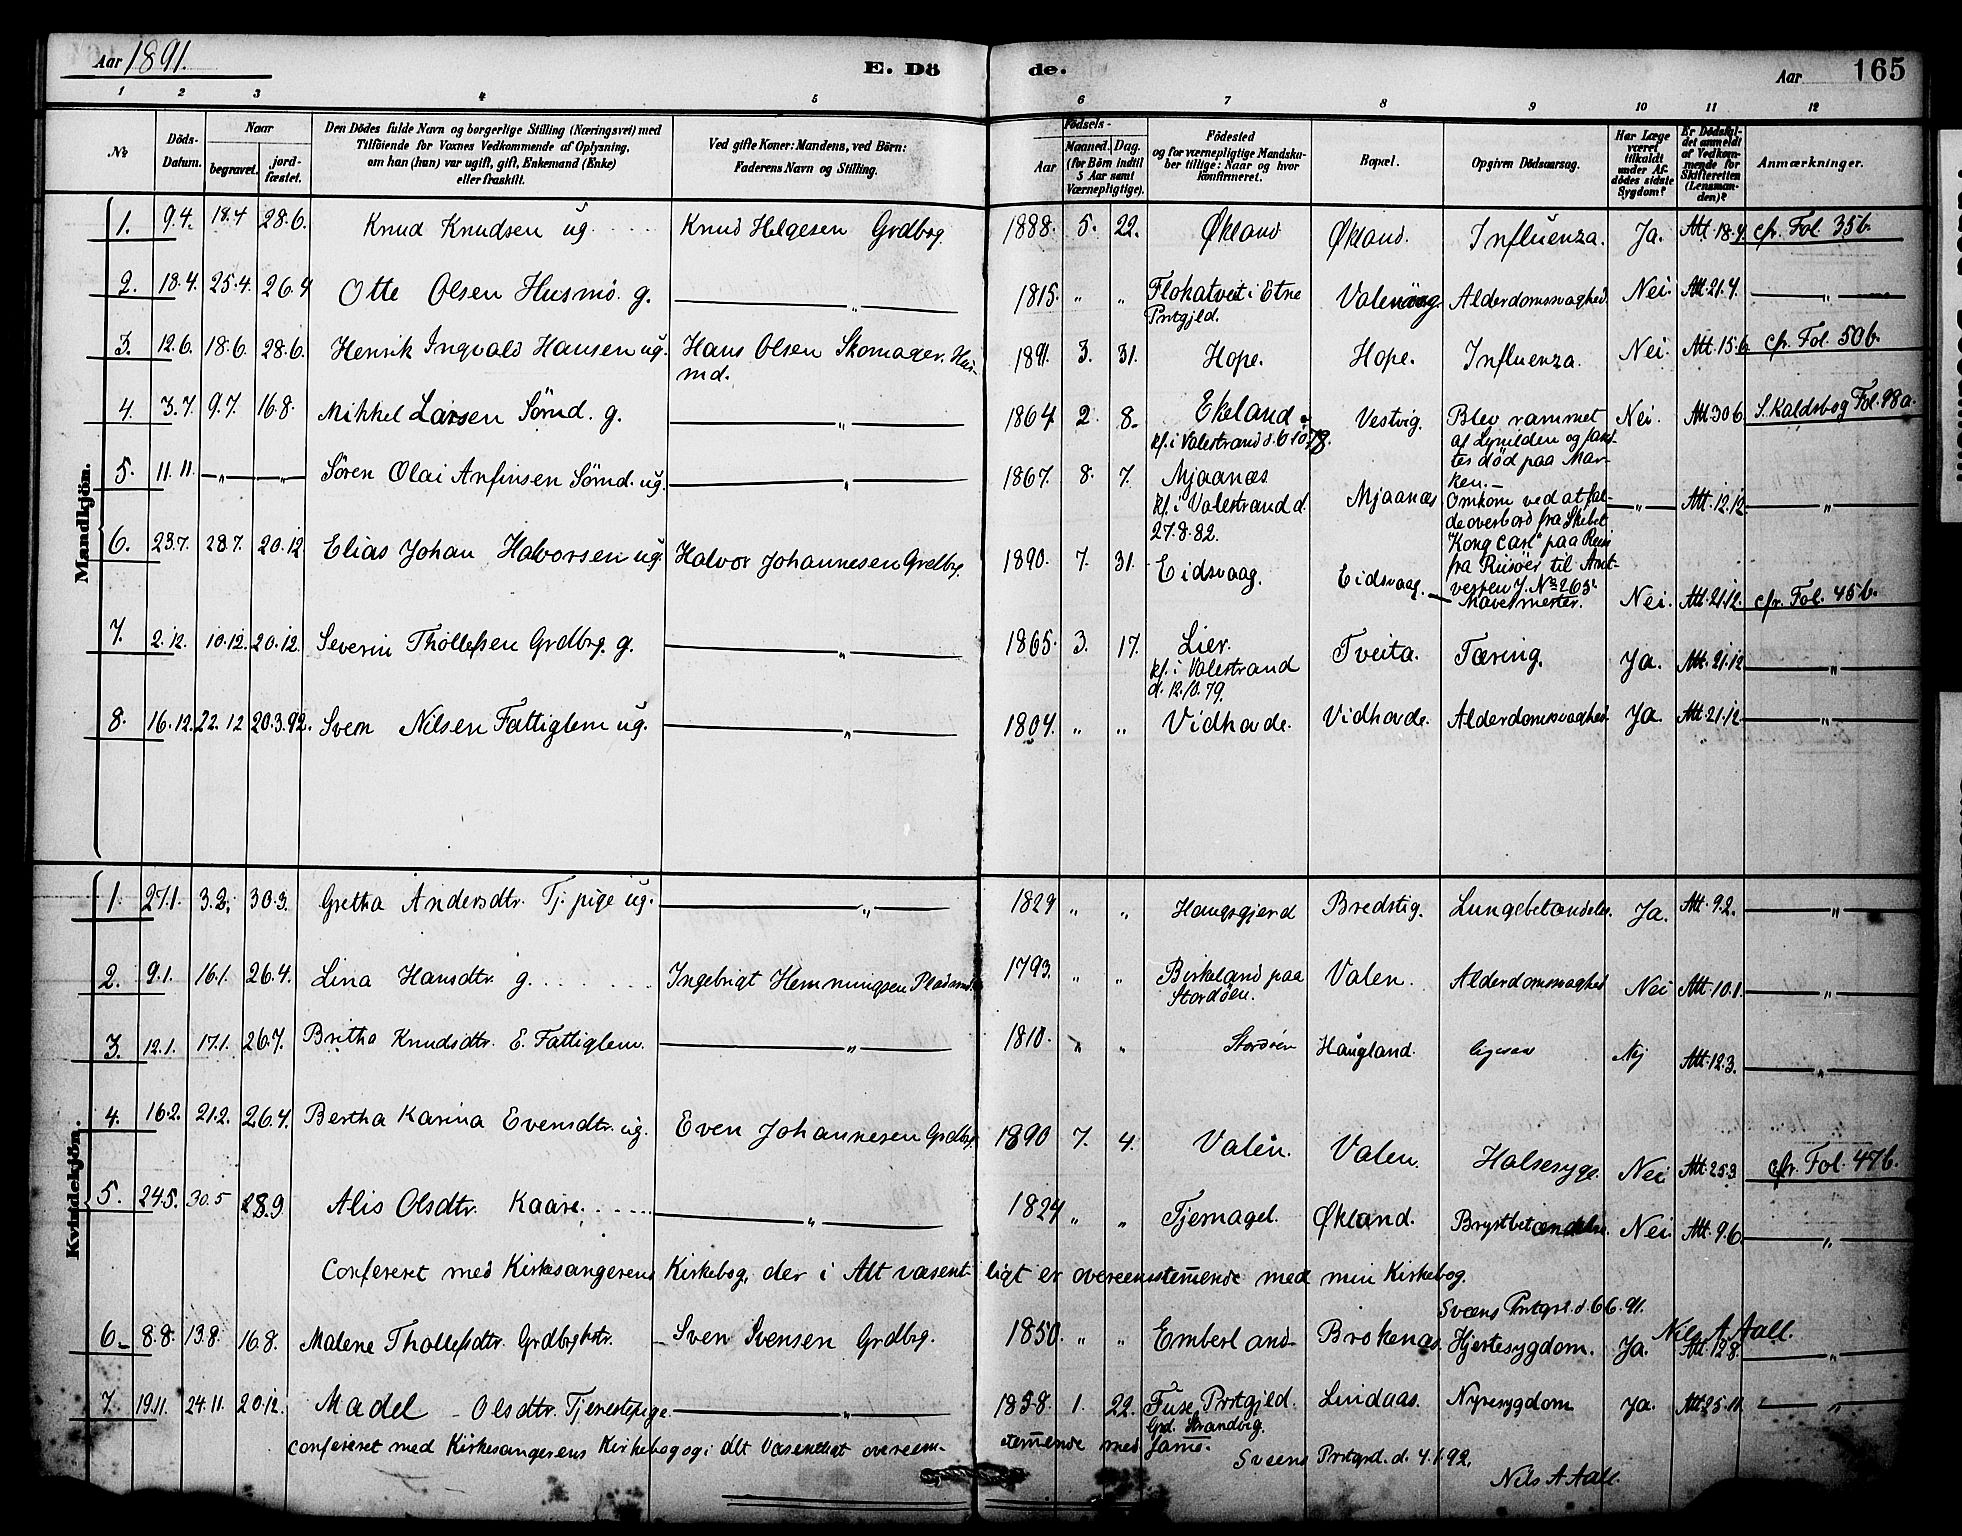 Aar 1891.
E. Dö de.
Aar
165
1 2 3 4 5 6 7 8 9 10 11 12
№
Döds-Datum.
Naar
begravet.
jord-fæstet.
Den Dödes fulde Navn og borgerlige Stilling (Næringsvei) med
Tilföiende for Voxnes Vedkommende af Oplysning,
om han (hun) var ugift, gift, Enkemand (Enke)
eller fraskilt.
Ved gifte Koner: Mandens, ved Börn:
Faderens Navn og Stilling.
Födsels-
Aar
Maaned.
Dag.
(for Börn indtil
5 Aar samt
Værnepligtige).
Födested
og for værnepligtige Mandska-
ber tillige: Naar og hvor
konfirmeret.
Bopæl.
Opgiven Dödsaarsag.
Har Læge
været
tilkaldt
under Af-
dödes sidste
Sygdom?
Er Dödsfal-
det anmeldt
af Vedkom-
mende for
Skifteretten
(Lensman-
den)?
Anmærkninger.
Mandkjön.
1. 9.4. 18.4 28.6. Knud Knudsen ug. Knud Helgesen Grdbrg. 1888. 5. 22. Økland Økland. Influenza. Ja. Att. 18.4. cfr. Fol. 35b.
2. 18.4. 25.4. 26.4 Otte Olsen Husmd. g. " 1815. " " Flokatveit i Etne Valenvaag Alderdomssvaghed. Nei. Att. 21.4. "
Prstgjld.
3. 12.6. 18.6. 28.6. Henrik Ingvald Hansen ug. Hans Olsen Skomager. Hus- 1891. 3. 31. Hope. Hope. Influenza. Nei. Att. 15.6. cfr. Fol. 50b.
md.
4. 3.7. 9.7. 16.8. Mikkel Larsen Sömd. g. " 1864 2. 8. Ekeland Vestvig. Blev rammet Nei. Att. 30.6. S. Kaldsbog Fol. 98a.
kf. i Valestrand d. 6.10.78. af Lynilden og fand-
tes död paa Mar-
ken.
5. 11.11. " " Sören Olai Anfinsen Sömd. ug. " 1867. 8. 7. Mjaanæs Mjaanæs Omkom ved at fal- " Att. 12.12 "
kf. i Valestrand d. de overbord fra Skibet
27.8.82. "Kong Carl" paa Reis
fra Riisöer til Ant-
verpen J. № 265.
6. 23.7. 28.7. 20.12. Elias Johan Halvorsen ug. Halvor Johannesen Grdbrg. 1890. 7. 31. Eidsvaag. Eidsvaag. Mavesmerter. Nei. Att. 21.12. cfr. Fol. 45b.
7. 2.12. 10.12. 20.12. Severin Thollefsen Grdbrg. g. " 1865. 3. 17. Lier. Tveita. Tæring. Ja. Att. 21.12 "
kf. i Valestrand
d. 12.10.79.
8. 16.12. 22.12 20.3.92. Sven Nilsen Fattiglem ug. " 1804. " " Vidhovde. Vidhovde. Alderdomssvaghed. Ja. Att. 21.12. "
Kvindekjön.
1. 27.1. 3.2. 30.3. Gretha Andersdtr. Tj. pige ug. " 1829 " " Haugsgjerd Bredstig. Lungebetændelse. Ja. Att. 9.2. "
2. 9.1. 16.1. 26.4. Lina Hansdtr. g. Ingebrigt Hemmingsen Pladsmd. 1793. " " Birkeland paa Valen. Alderdomssvaghed Nei Att. 10.1. "
Stordöen.
3. 12.1. 17.1. 26.7. Britha Knudsdtr. E. Fattiglem. " 1810. " " Stordöen Haugland. ligesaa Nej Att. 12.3. "
4. 16.2. 21.2. 26.4 Bertha Karina Evensdtr. ug. Even Johannesen Grdbrg. 1890 7. 4. Valen. Valen. Halsesyge. Nei Att. 25.3. cfr. Fol. 47b.
5. 24.5. 30.5 28.9 Alis Olsdtr. Kaare. " 1824 " " Tjernagel. Økland. Brystbetændelse. Nei. Att. 9.6. "
Confereret med Kirkesangerens Kirkebog, der i Alt væsent- ligt er overeensstem̄ende med min Kirkebog.
Sveens Prstgrd. d. 6.6.91.
Nils A Aall.
6. 8.8. 13.8. 16.8. Malene Thollefsdtr. Grdbrgkstr. Sven Svensen Grdbrg. 1850. " " Emberland Brokenæs. Hjertesygdom. Ja. Att. 12.8. "
7. 19.11. 24.11. 20.12. Madel Olsdtr. Tjenestepige " 1858. 1. 22. Fuse Prstgjld. Lindaas. Nyresygdom Ja. Att. 25.11. "
Grd. Strandvig.
Confereret med Kirkesangerens Kirkebog og i Alt væsentligt overeens- stem̄ende med sam̄e.
Sveens Prstgrd. d. 4.1.92.
Nils A Aall.